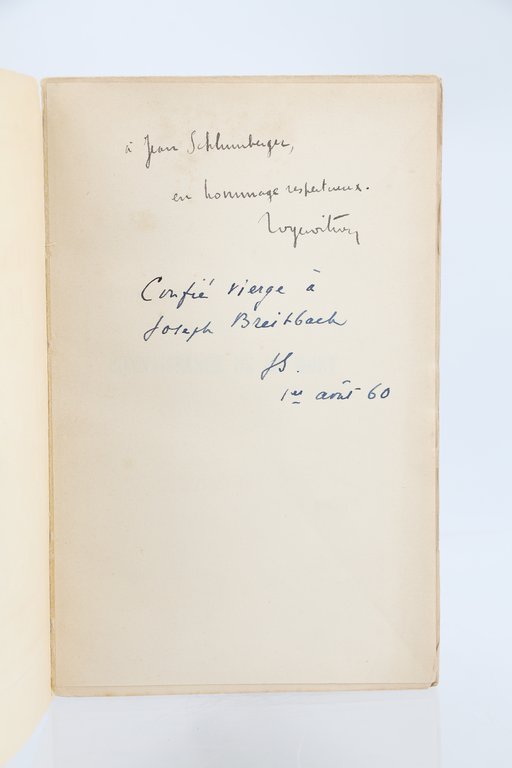 à Jean Schlumberger,
en hommage respectueux.
Confié vierge à
Joseph Breitbach
JS.
1er août 60